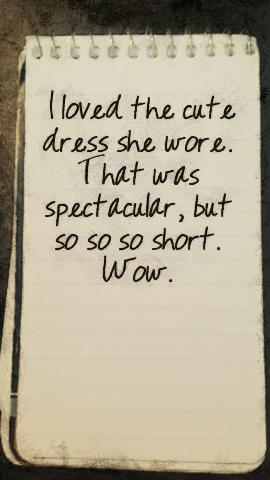 I loved the cute
dress she wore.
That was
spectacular, but
so so so short.
Wow.